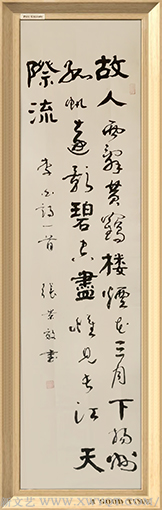 故人西辭黃鶴樓煙花三月下揚州
孤帆遠影碧空盡惟見長江天
際流
李白詩一首
張 書
文艺
A GOOD TIME